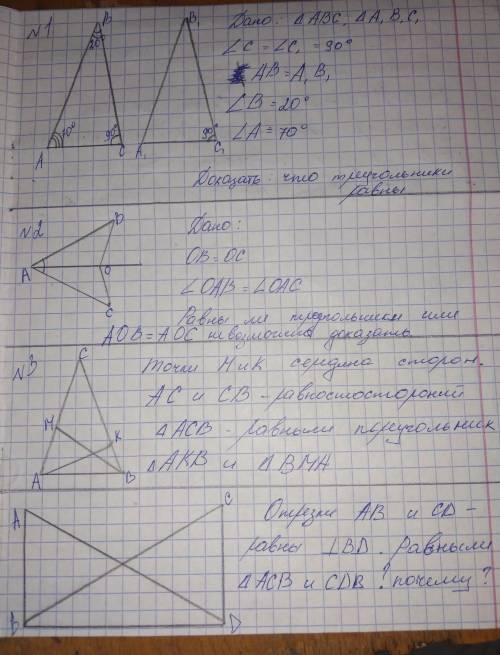 N1
B
20°
70°
90°
A
C
B₁
90°
A₁
C₁
Дано: △ABC, △A₁B₁C₁
∠C = ∠C₁ = 90°
AB = A₁B₁
∠B = 20°
∠A = 70°
Доказать: что треугольники
равны
N2
B
A
O
C
Дано:
OB = OC
∠OAB = ∠OAC
Равны ли треугольники или
AOB = AOC невозможно доказать.
N3
C
M
K
A
B
Точки M и K середина сторон.
AC и CB - равностосторонний
△ACB - равными треугольник
△AKB и △BMA
A
C
B
D
Отрезки AB и CD -
равны ⊥BD. Равными
△ACB и CDB ? почему ?